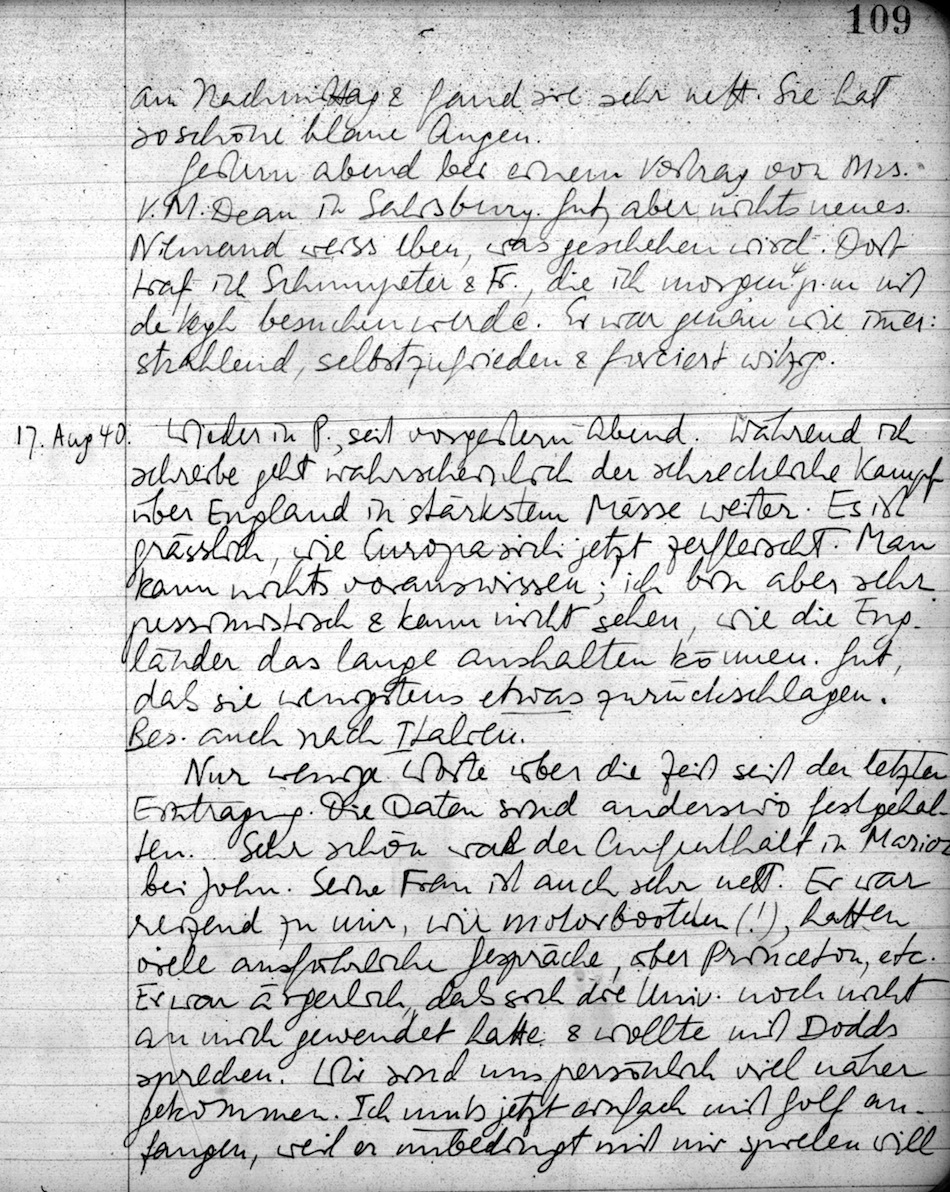 109
am Nachmittag & fand sie sehr nett. Sie hat
so schöne blaue Augen.
Gestern abend bei einem Vortrag von Mrs.
V. M. Dean in Salisbury. Gut, aber nichts neues.
Niemand weiss eben, was geschehen wird. Dort
traf ich Schumpeter & Fr., die ich morgen 4 p.m mit
de Kgh besuchen werde. Er war genau wie immer:
strahlend, selbstzufrieden & forciert witzig.
17. Aug 40. Wieder in P., seit vorgestern Abend. Während ich
schreibe geht wahrscheinlich der schreckliche Kampf
über England in stärkstem Masse weiter. Es ist
grässlich, wie Europa sich jetzt zerfleischt. Man
kann nichts vorauswissen; ich bin aber sehr
pessimistisch & kann nicht sehen, wie die Eng-
länder das lange aushalten können. Gut,
dass sie wenigstens etwas zurückschlagen.
Bes. auch nach Italien.
Nur wenige Worte über die Zeit seit der letzten
Eintragung. Die Daten sind anderswo festgehal-
ten. Sehr schön war der Aufenthalt in Marion
bei John. Seine Frau ist auch sehr nett. Er war
reizend zu mir, wir motorbooteten (!), hatten
viele ausführliche Gespräche, über Princeton, etc.
Er war ärgerlich, dass sich die Univ. noch nicht
an mich gewendet hatte & wollte mit Dodds
sprechen. Wir sind uns persönlich viel näher
gekommen. Ich muss jetzt einfach mit Golf an-
fangen, weil er unbedingt mit mir spielen will